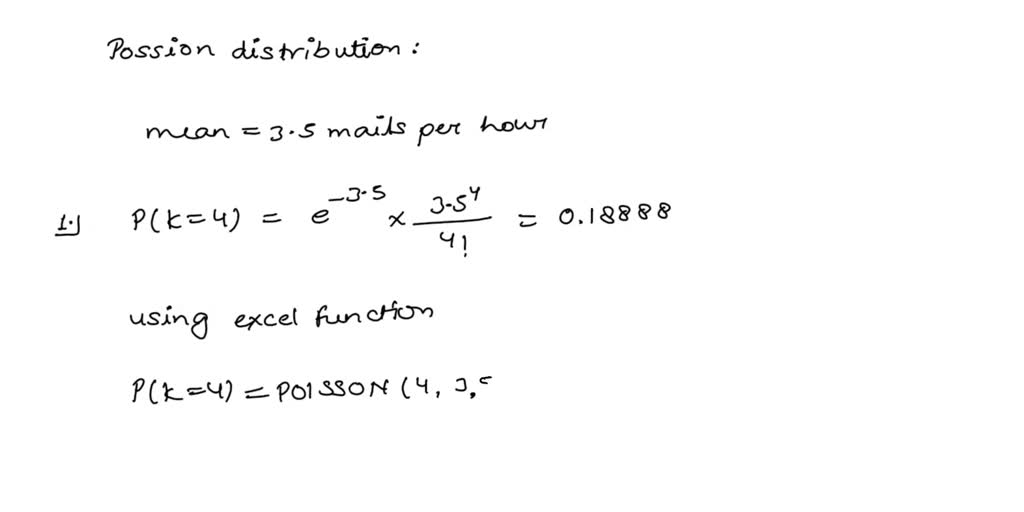 Possion distribution:
mean = 3.5 mails per hour
1.] P(k=4) = e^-3.5 × 3.5^4/4! = 0.18888
using excel function
P(k=4) = POISSON (4, 3.5